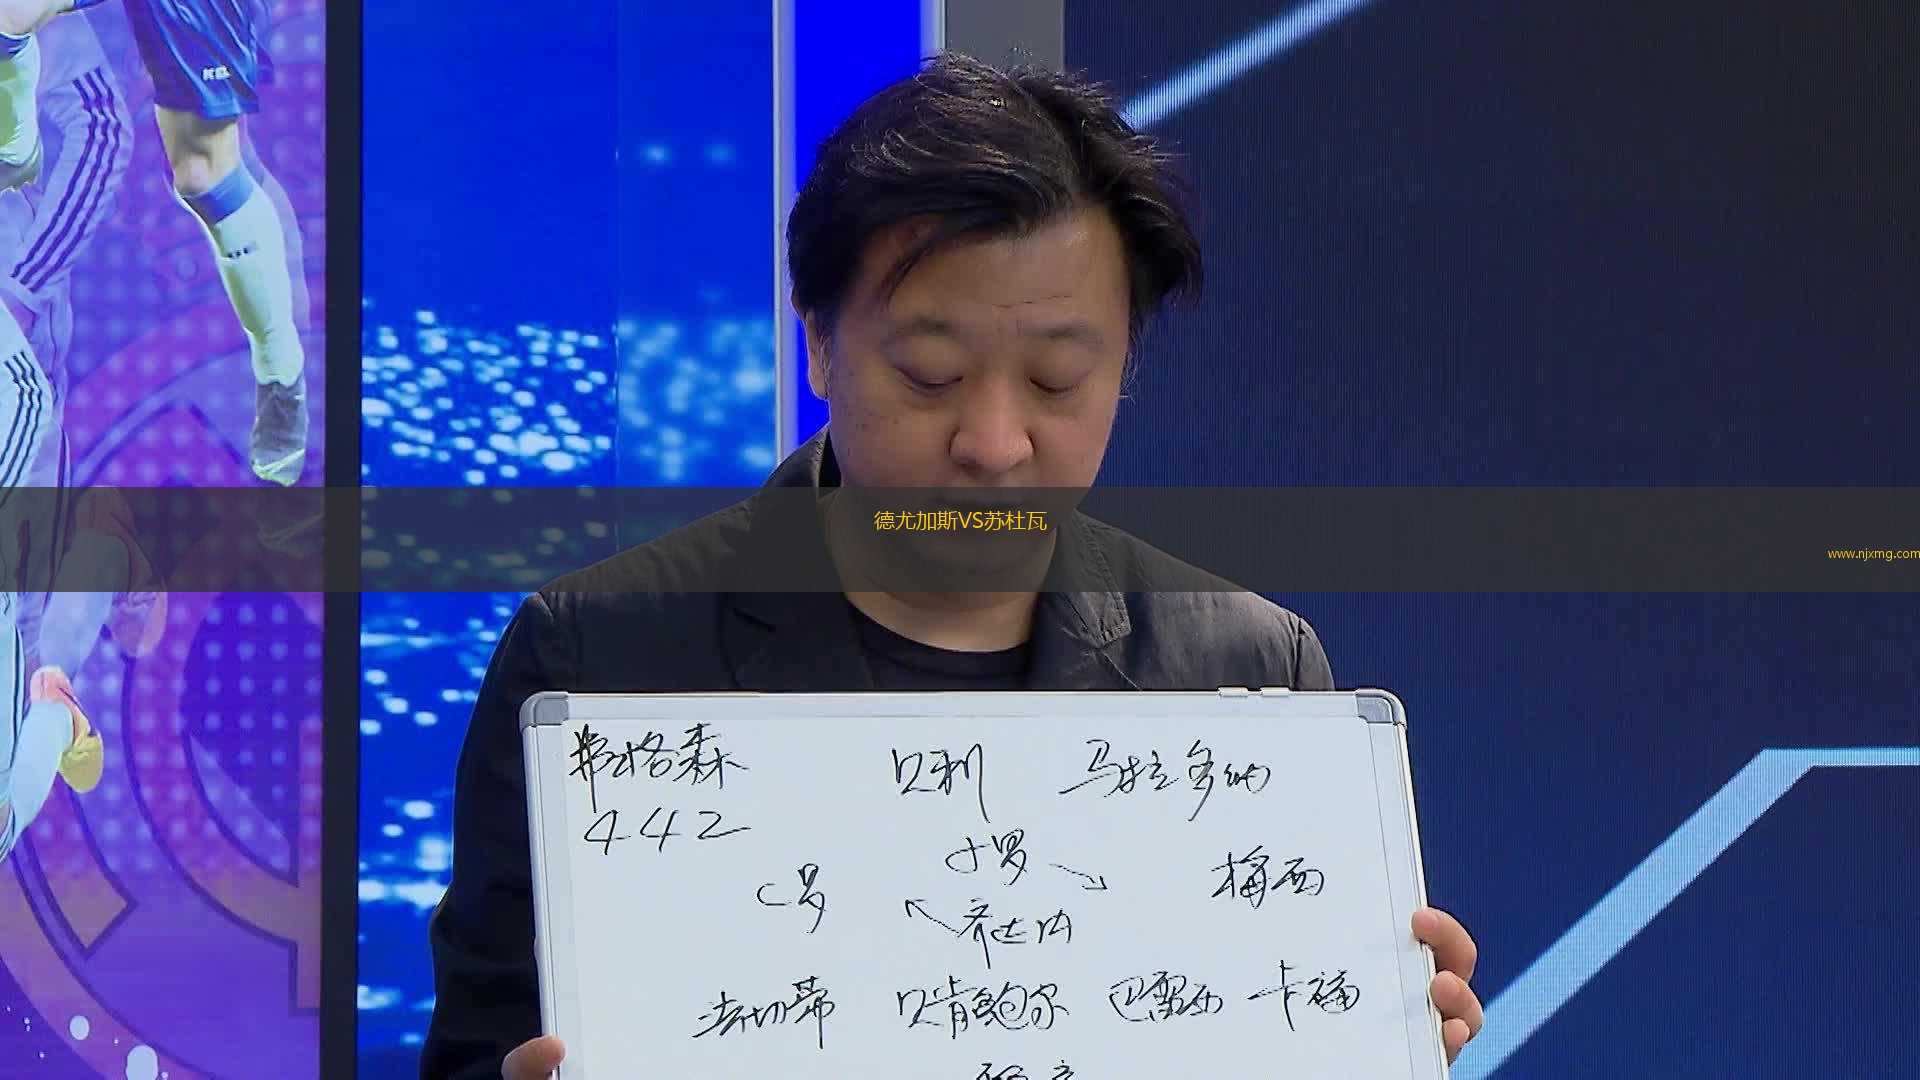 德尤加斯VS苏杜瓦
www.njxmg.com
弗格森 贝利 马拉多纳
442
小罗
C罗 梅西
齐达内
法切蒂 贝肯鲍尔 巴雷西 卡福